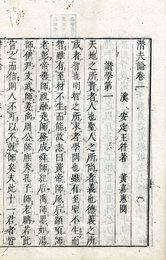 潛夫論卷一
漢 安定王符著 黃嘉惠閱
讚學第一
天地之所貴者人也聖人之所尚者義也德義之所
成者智也明智之所求者學問也雖有至聖不生而
智雖有至材不生而能故志曰黃帝師風后顓頊師
老彭帝嚳師祝融堯師務成舜師紀后禹師墨如湯
師伊尹文武師姜尚周公師庶秀孔子師老聃若此
言之而信則人不可以不就師矣夫此十一君者皆